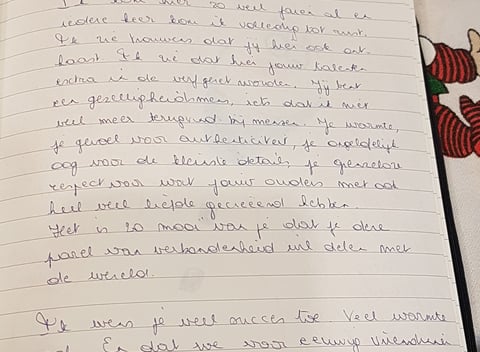 Ik kom hier zo veel jaren al en
iedere keer kom ik volledig tot rust.
Ik zie trouwens dat jij hier ook ont-
haast. Ik zie dat hier jouw talenten
extra in de verf gezet worden. Jij bent
een gezelligheidsmens, iets dat ik niet
veel meer terugvind bij mensen. Je warmte,
je gevoel voor authenticiteit, je ongelofelijk
oog voor de kleinste details, je grenzeloos
respect voor wat jouw ouders met ook
heel veel liefde gecreëerd hebben.
Het is zo mooi van je dat je deze
parel van verbondenheid wil delen met
de wereld.
Ik wens je veel succes toe. Veel warmte
En dat we voor eeuwig vriendinnen